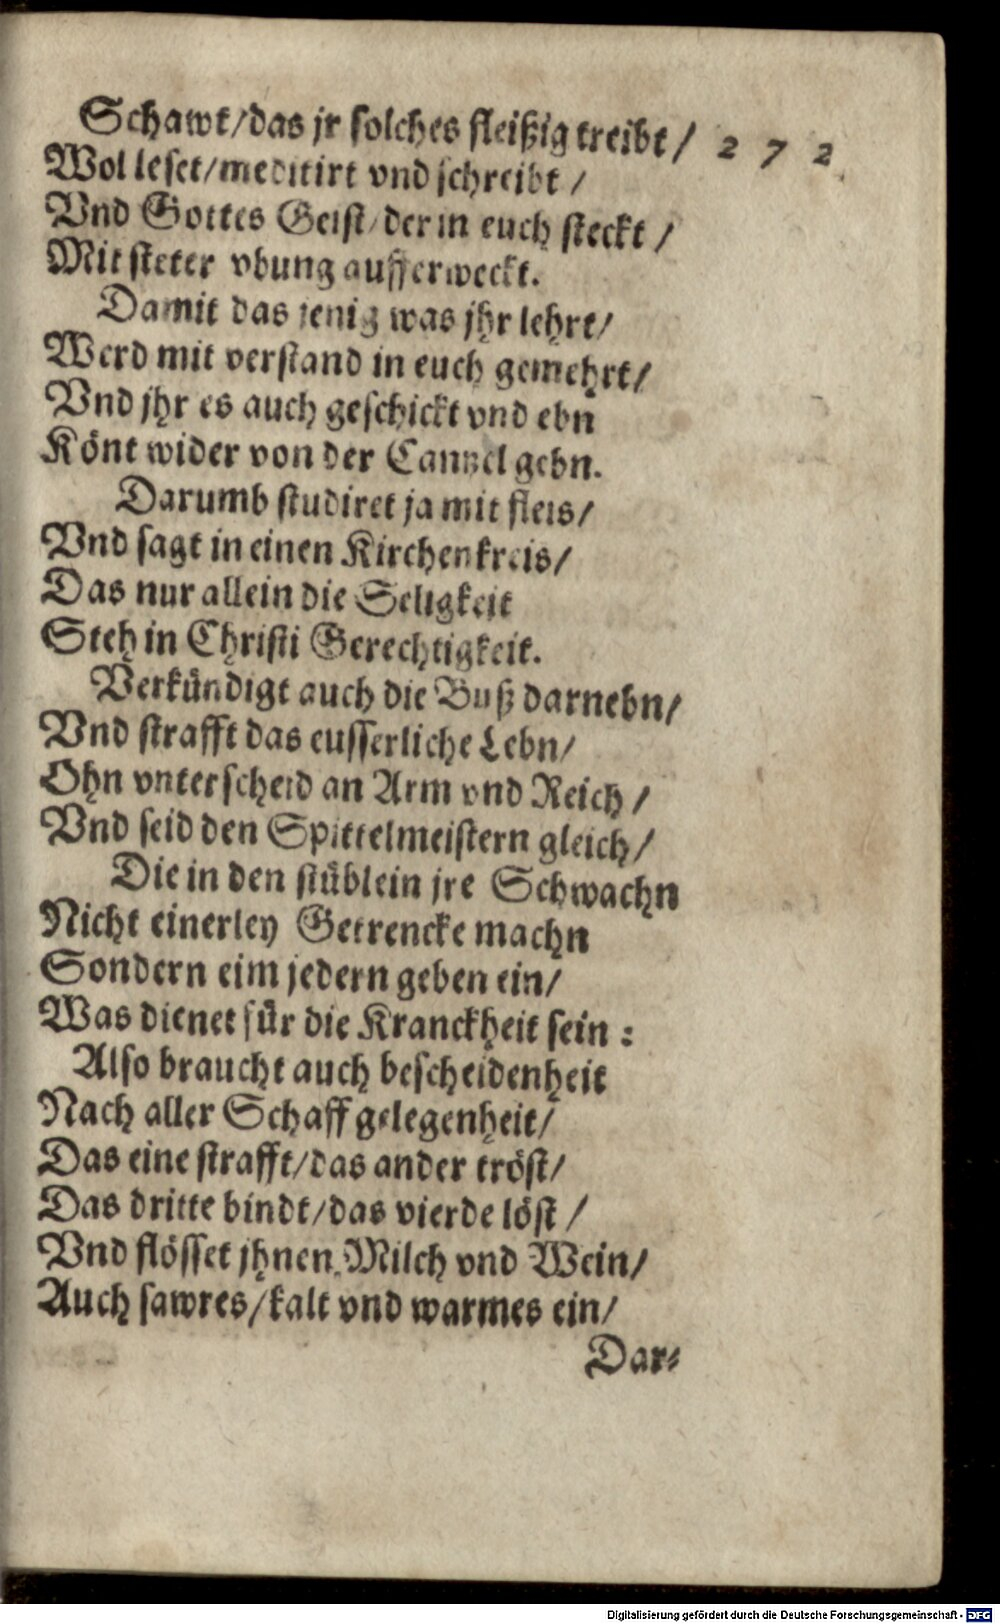 Schawt/das jr solches fleißig treibt/ 272
Wol leset/meditirt vnd schreibt/
Vnd Gottes Geist/der in euch steckt/
Mit steter vbung aufferweckt.
Damit das jenig was jhr lehrt/
Werd mit verstand in euch gemehrt/
Vnd jhr es auch geschickt vnd ebn
Könt wider von der Cantzel gebn.
Darumb studiret ja mit fleis/
Vnd sagt in einen Kirchenkreis/
Das nur allein die Seligkeit
Steh in Christi Gerechtigkeit.
Verkündigt auch die Buß darnebn/
Vnd strafft das eusserliche Lebn/
Ohn vnterscheid an Arm vnd Reich/
Vnd seid den Spittelmeistern gleich/
Die in den stüblein jre Schwachn
Nicht einerley Getrencke machn
Sondern eim jedern geben ein/
Was dienet für die Kranckheit sein:
Also braucht auch bescheidenheit
Nach aller Schaff gelegenheit/
Das eine strafft/das ander tröst/
Das dritte bindt/das vierde löst/
Vnd flösset jhnen Milch vnd Wein/
Auch sawres/kalt vnd warmes ein/
Dar-
Digitalisierung gefördert durch die Deutsche Forschungsgemeinschaft - DFG